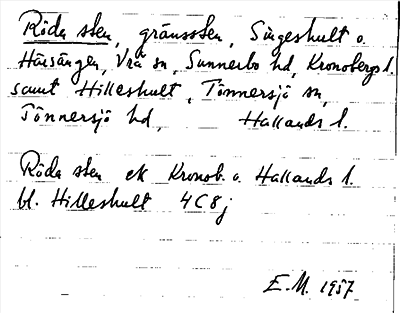 Röda sten, gränssten, Singeshult o.
Härsången, Vrå sn, Sunnerbo hd, Kronobergs l.
samt Hilleshult, Tönnersjö sn,
Tönnersjö hd, Hallands l.
Röda sten ek Kronob. o. Hallands l.
bl. Hilleshult 4C8j
E.M. 1957